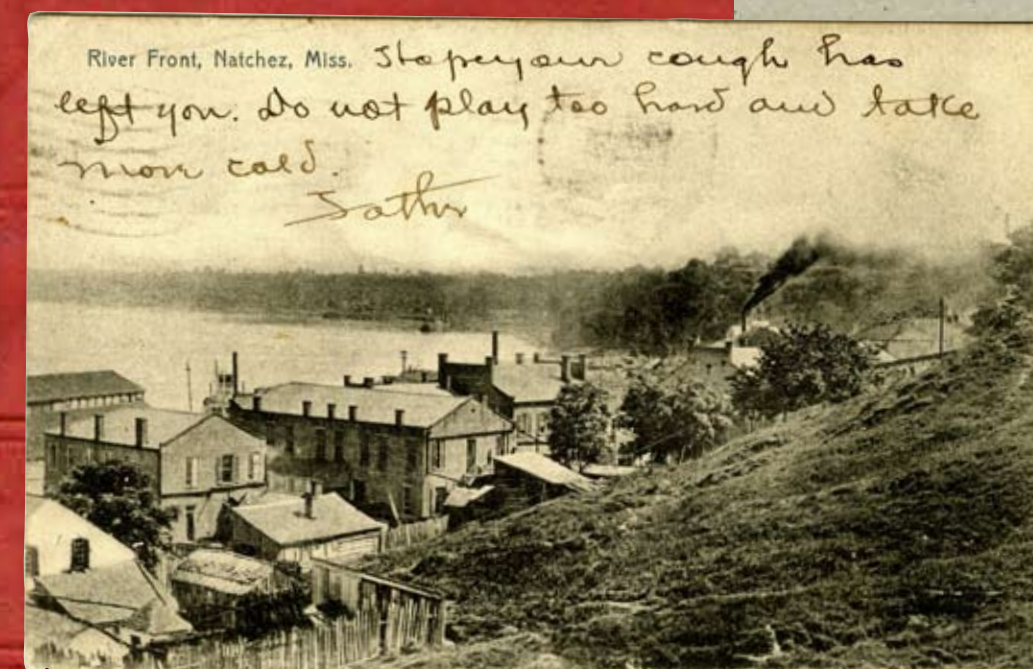 River Front, Natchez, Miss. I hope your cough has
left you. Do not play too hard and take
more cold.
Father